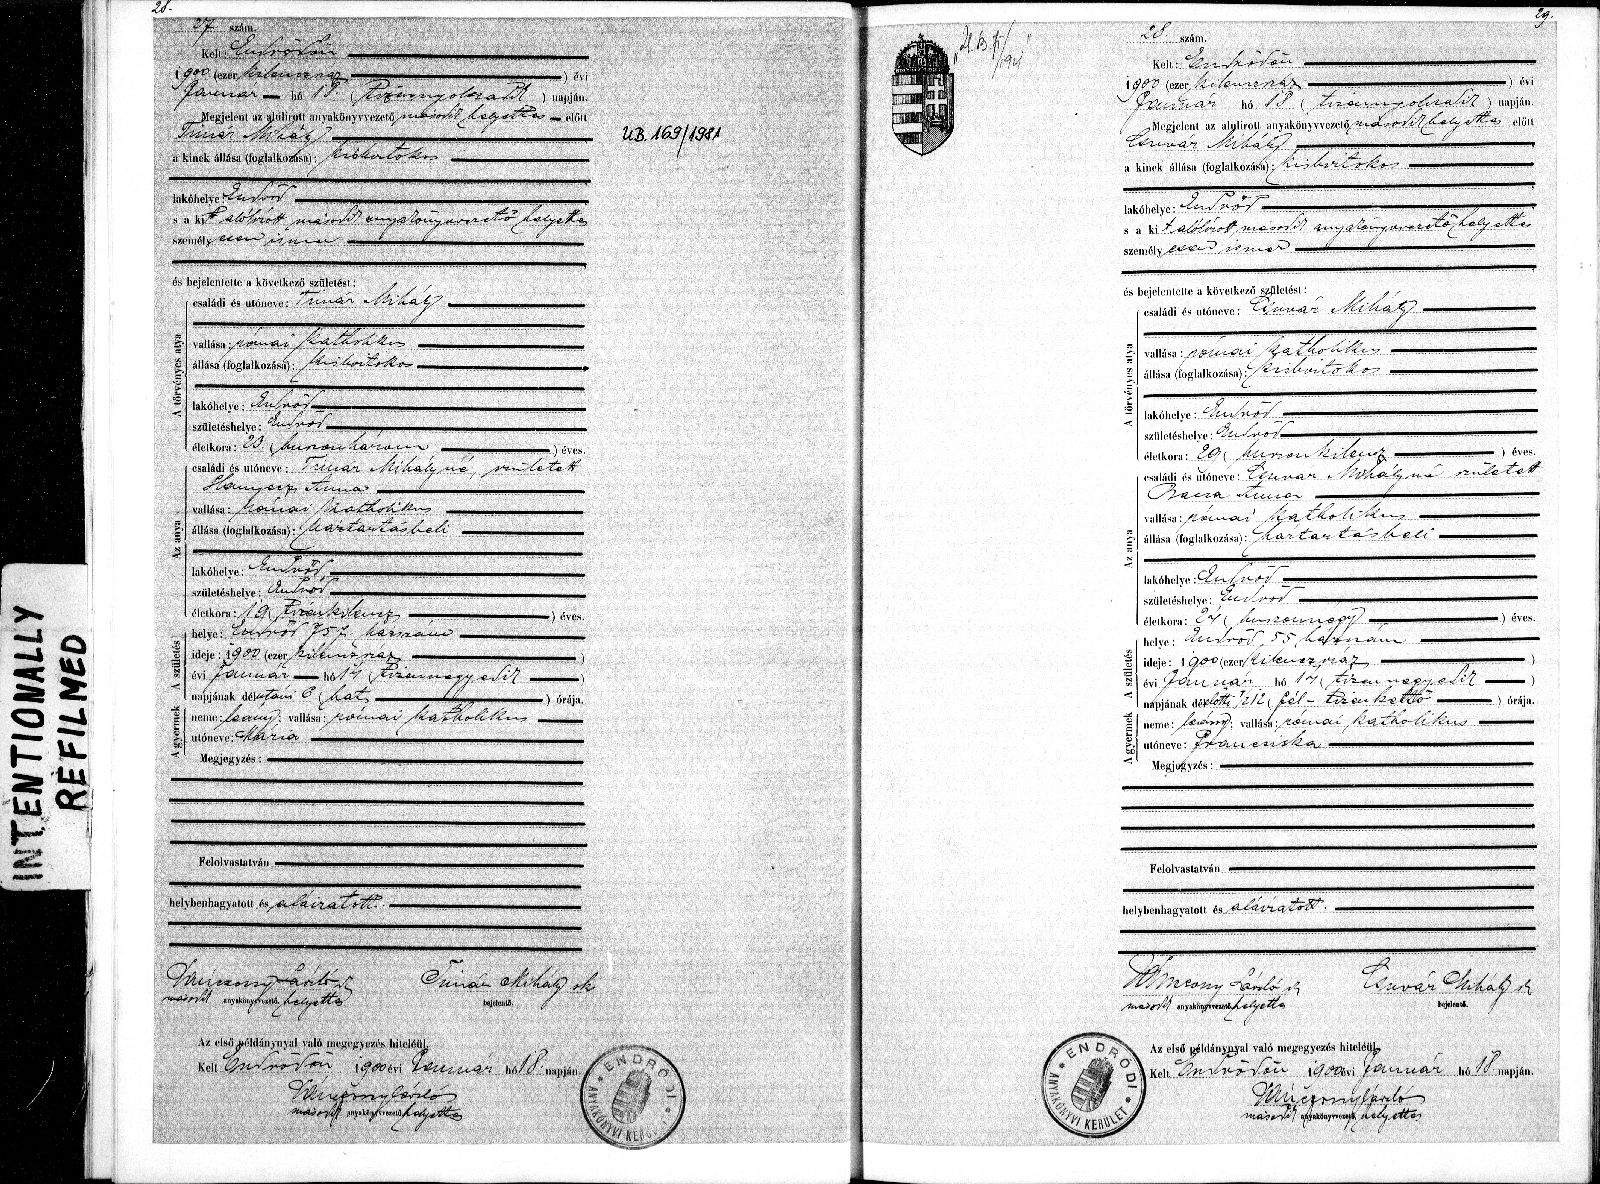 INTENTIONALLY
REFILMED
28.
27 szám.
Kelt: Endrődön
1900 (ezer kilenczszáz) évi
Január hó 18 (tizennyolczadik) napján.
Megjelent az alulirott anyakönyvvezető második helyettes előtt
Timár Mihály
a kinek állása (foglalkozása): kisbirtokos
lakóhelye: Endrőd
s a kit alólirott második anyakönyvvezető helyettes
személyesen ismer
és bejelentette a következő születést:
A törvényes atya
családi és utóneve: Timár Mihály
vallása: római katholikus
állása (foglalkozása): kisbirtokos
lakóhelye: Endrőd
születéshelye: Endrőd
életkora: 23 (huszonhárom) éves.
Az anya
családi és utóneve: Timár Mihályné, született
Anna
vallása: római katholikus
állása (foglalkozása): háztartásbeli
lakóhelye: Endrőd
születéshelye: Endrőd
életkora: 19 (tizenkilencz) éves.
A születés
helye: Endrőd 757 házszám
ideje: 1900 (ezer kilenczszáz)
évi Január hó 14 (tizennegyedik)
napjának délutáni 6 (hat) órája.
A gyermek
neme: leány; vallása: római katholikus
utóneve: Mária
Megjegyzés:
Felolvastatván
helybenhagyatott és aláiratott.
László
második anyakönyvvezető helyettes
Timár Mihály sk
bejelentő.
Az első példánynyal való megegyezés hiteléül.
Kelt Endrődön 1900 évi Január hó 18. napján.
László
második anyakönyvvezető helyettes
ENDRŐDI
ANYAKÖNYVI KERÜLET
UB. 169/1981
29.
28 szám.
Kelt: Endrődön
1900 (ezer kilenczszáz) évi
Január hó 18 (tizennyolczadik) napján.
Megjelent az alulirott anyakönyvvezető második helyettes előtt
Csuvár Mihály
a kinek állása (foglalkozása): kisbirtokos
lakóhelye: Endrőd
s a kit alólirott második anyakönyvvezető helyettes
személyesen ismer
és bejelentette a következő születést:
A törvényes atya
családi és utóneve: Csuvár Mihály
vallása: római katholikus
állása (foglalkozása): kisbirtokos
lakóhelye: Endrőd
születéshelye: Endrőd
életkora: 29 (huszonkilencz) éves.
Az anya
családi és utóneve: Csuvár Mihályné született
Bacsa Anna
vallása: római katholikus
állása (foglalkozása): háztartásbeli
lakóhelye: Endrőd
születéshelye: Endrőd
életkora: 24 (huszonnégy) éves.
A születés
helye: Endrőd, 55 házszám
ideje: 1900 (ezer kilenczszáz)
évi Január hó 14 (tizennegyedik)
napjának délelőtti 1/2 12 (fél-tizenkettő) órája.
A gyermek
neme: leány; vallása: római katholikus
utóneve: Franciska
Megjegyzés:
Felolvastatván
helybenhagyatott és aláiratott.
László sk
második anyakönyvvezető helyettes
Csuvár Mihály sk
bejelentő.
Az első példánynyal való megegyezés hiteléül.
Kelt Endrődön 1900 évi Január hó 18 napján.
László
második anyakönyvvezető helyettes
ENDRŐDI
ANYAKÖNYVI KERÜLET